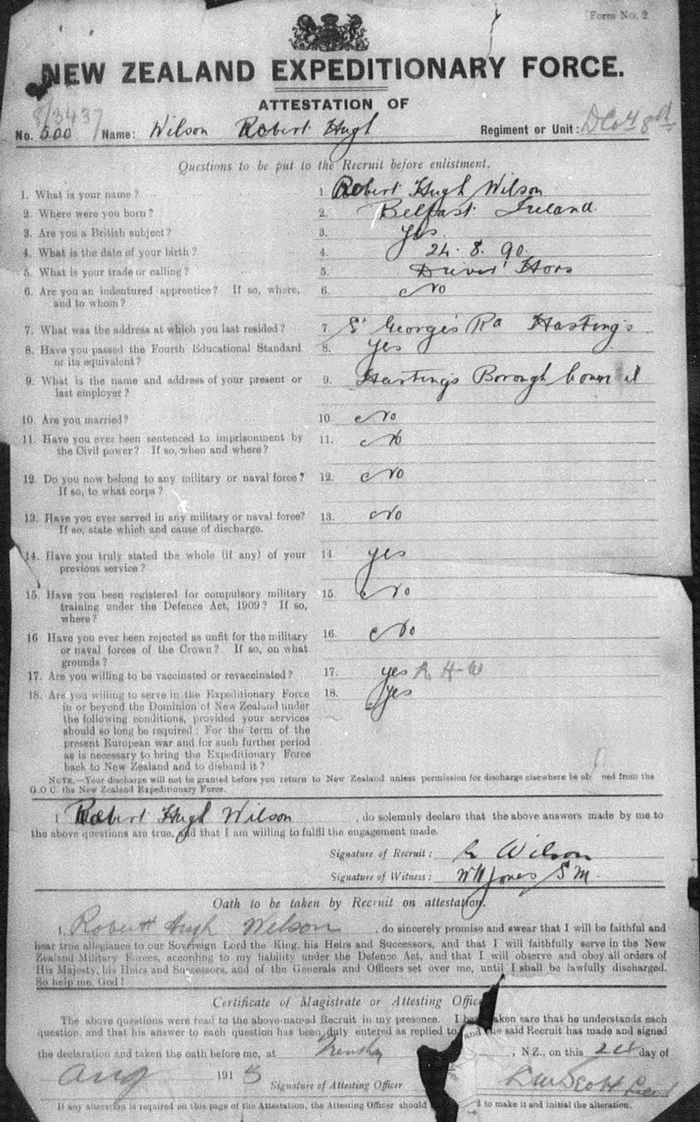 [Form No. 2
NEW ZEALAND EXPEDITIONARY FORCE.
ATTESTATION OF
8/3437
No. 500 Name: Wilson Robert Hugh Regiment or Unit:
Questions to be put to the Recruit before enlistment.
1. What is your name? 1. Robert Hugh Wilson
2. Where were you born? 2. Belfast Ireland.
3. Are you a British subject? 3. Yes.
4. What is the date of your birth? 4. 24. 8. 90.
5. What is your trade or calling? 5. Driver Hors
6. Are you an indentured apprentice? If so, where, 6. No
and to whom?
7. What was the address at which you last resided? 7. St George's Rd Hastings
8. Have you passed the Fourth Educational Standard 8. yes
or its equivalent?
9. What is the name and address of your present or 9. Hastings Borough Council
last employer?
10. Are you married? 10. No
11. Have you ever been sentenced to imprisonment by 11. No
the Civil power? If so, when and where?
12. Do you now belong to any military or naval force? 12. No
If so, to what corps?
13. Have you ever served in any military or naval force? 13. No
If so, state which and cause of discharge.
14. Have you truly stated the whole (if any) of your 14. yes
previous service?
15. Have you been registered for compulsory military 15. No
training under the Defence Act, 1909? If so,
where?
16 Have you ever been rejected as unfit for the military 16. No
or naval forces of the Crown? If so, on what
grounds?
17. Are you willing to be vaccinated or revaccinated? 17. yes R H W
18. Are you willing to serve in the Expeditionary Force 18. yes
in or beyond the Dominion of New Zealand under
the following conditions, provided your services
should so long be required: For the term of the
present European war and for such further period
as is necessary to bring the Expeditionary Force
back to New Zealand and to disband it?
NOTE.—Your discharge will not be granted before you return to New Zealand unless permission for discharge elsewhere be ob ned from the
G.O.C. the New Zealand Expeditionary Force.
I Robert Hugh Wilson, do solemnly declare that the above answers made by me to
the above questions are true, and that I am willing to fulfil the engagement made.
Signature of Recruit: R Wilson
Signature of Witness: WH Jones S M.
Oath to be taken by Recruit on attestation.
I, Robert Hugh Wilson, do sincerely promise and swear that I will be faithful and
bear true allegiance to our Sovereign Lord the King, his Heirs and Successors, and that I will faithfully serve in the New
Zealand Military Forces, according to my liability under the Defence Act, and that I will observe and obey all orders of
His Majesty, his Heirs and Successors, and of the Generals and Officers set over me, until I shall be lawfully discharged.
So help me, God!
Certificate of Magistrate or Attesting Office
The above questions were read to the above-named Recruit in my presence. I ha taken care that he understands each
question, and that his answer to each question has been duly entered as replied to, and the said Recruit has made and signed
the declaration and taken the oath before me, at , NZ., on this day of
Aug 1915
Signature of Attesting Officer
If any alteration is required on this page of the Attestation, the Attesting Officer should d to make it and initial the alteration.